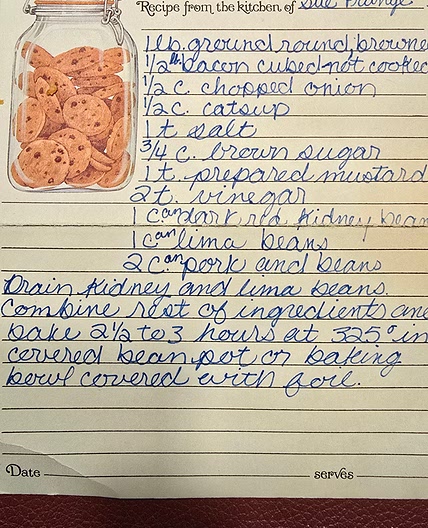 Recipe from the kitchen of Sue
1 lb. ground round, browne
1/2 lb. bacon cubed-not cooked
1/2 c. chopped onion
1/2 c. catsup
1 t salt
3/4 c. brown sugar
1 t. prepared mustard
2 t. vinegar
1 can dark red kidney bean
1 can lima beans
2 can pork and beans
Drain kidney and lima beans.
Combine rest of ingredients and
bake 2 1/2 to 3 hours at 325° in
covered bean pot or baking
bowl covered with foil.
Date serves